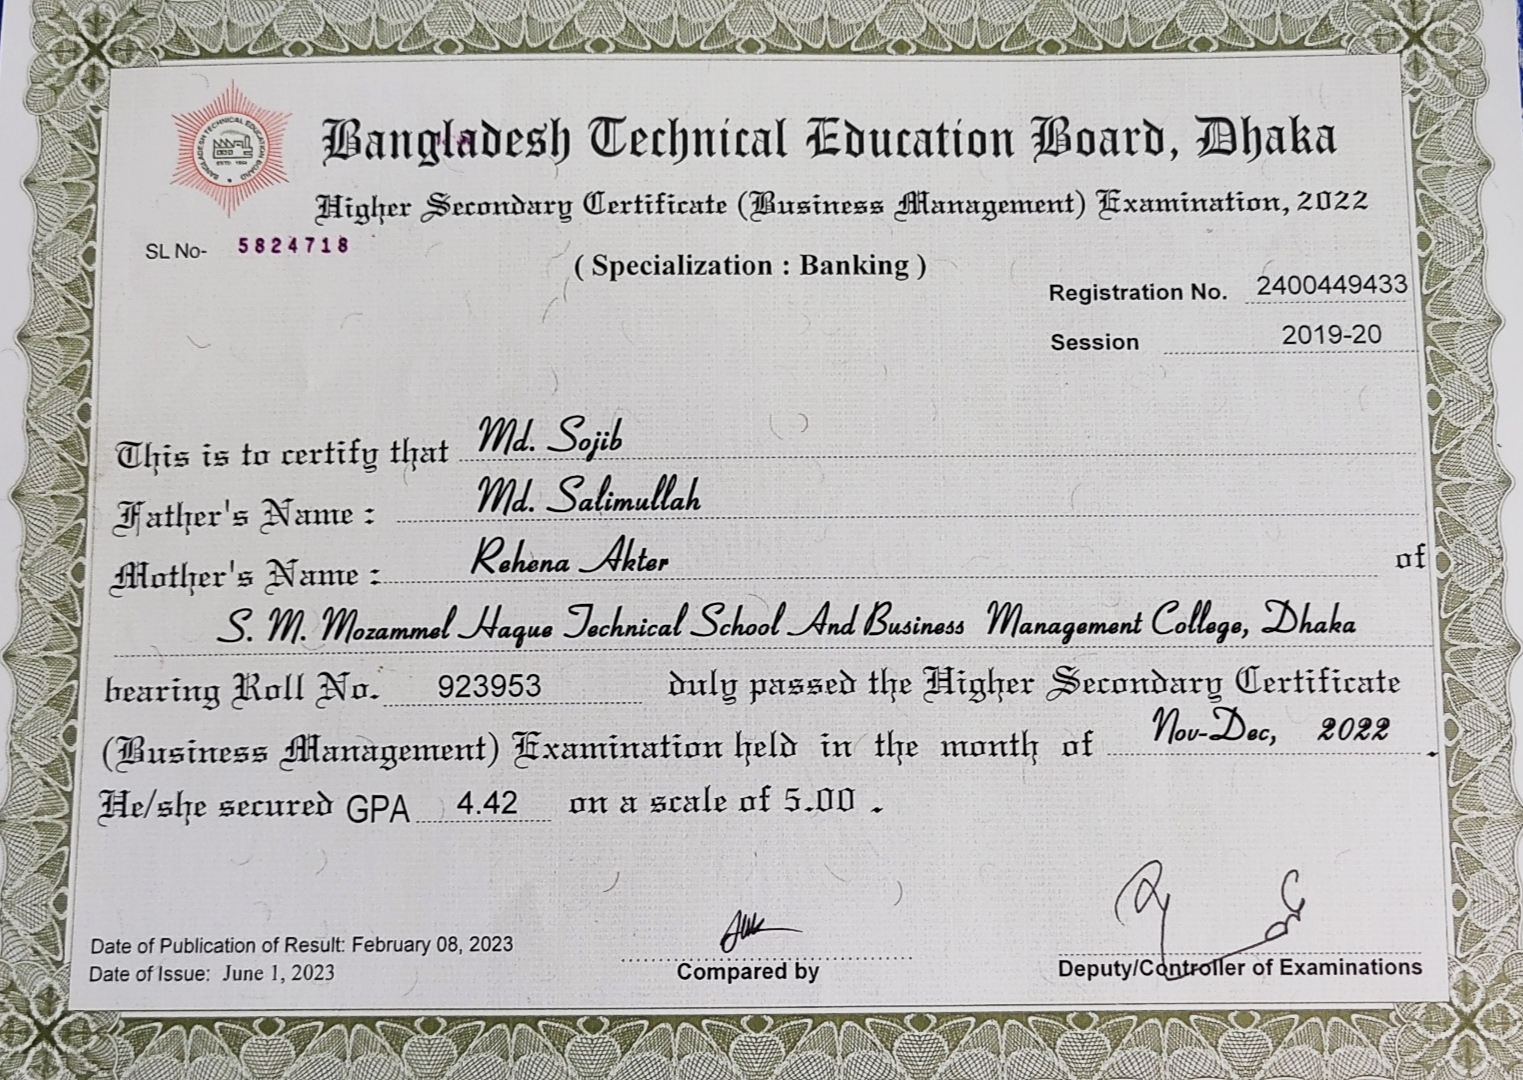 Bangladesh Technical Education Board, Dhaka
Higher Secondary Certificate (Business Management) Examination, 2022
BANGLADESH TECHNICAL EDUCATION BOARD
SL No- 5824718
( Specialization : Banking )
Registration No. 2400449433
Session 2019-20
This is to certify that Md. Sojib
Father's Name : Md. Salimullah
Mother's Name : Rehena Akter of
S. M. Mozammel Haque Technical School And Business Management College, Dhaka
bearing Roll No. 923953 duly passed the Higher Secondary Certificate
(Business Management) Examination held in the month of Nov-Dec, 2022 .
He/she secured GPA 4.42 on a scale of 5.00 .
Date of Publication of Result: February 08, 2023
Date of Issue: June 1, 2023
Compared by
Deputy/Controller of Examinations